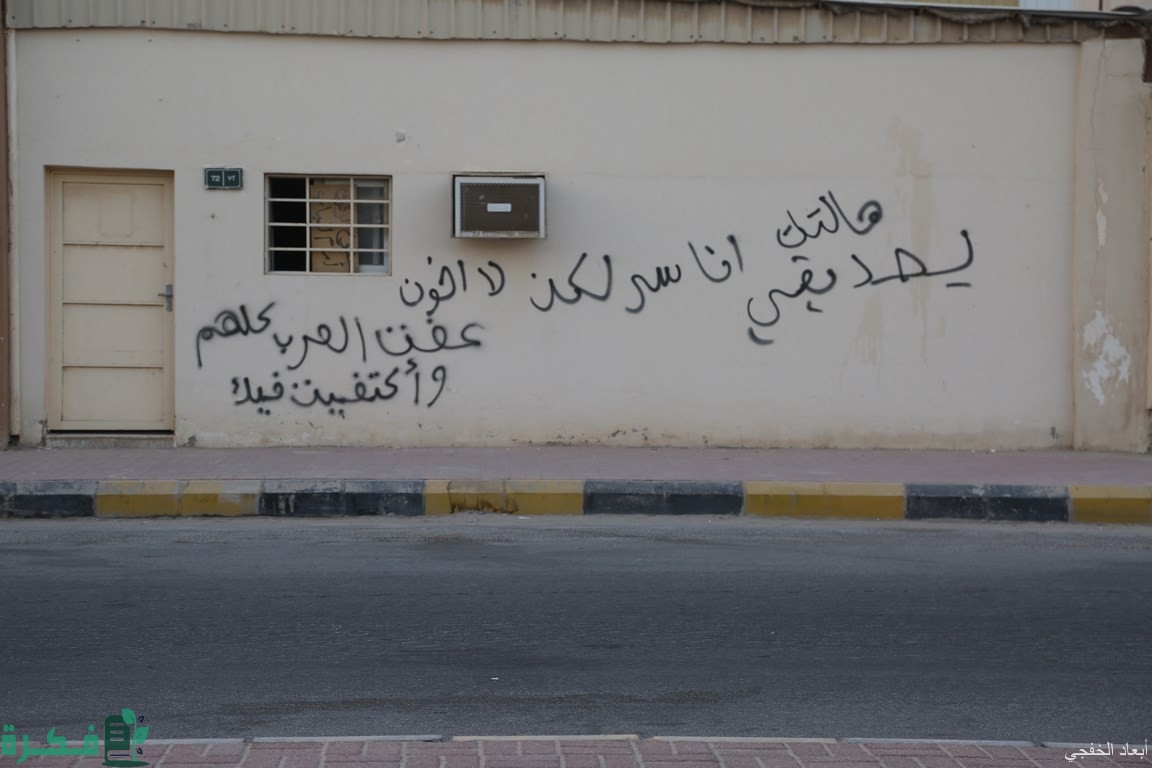 هالتك
يصديقي انا سر لكن لا اخون
عفت العرب كلهم
وأكتفيت فيك
72 ٧٢
فكرة
أبعاد الخفجي